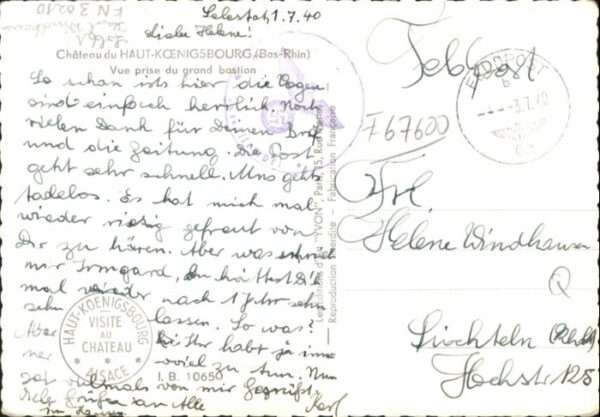 Selestat, 1.7.40
Liebe Helene!
Château du HAUT-KŒNIGSBOURG (Bas-Rhin)
Vue prise du grand bastion
So schön ists hier die Vogesen
sind einfach herrlich. Noch
vielen Dank für Deinen Brief
und die Zeitung. Die Post
geht sehr schnell. Uns gehts
tadelos. Es hat mich mal
wieder riesig gefreut von
Dir zu hören. Aber was schrieb
mir Irmgard, Du hättest Dich
mal wieder nach 1 Jahr sehn
lassen. So was?
Aber Ihr habt ja immer
soviel zu tun. Nun
sei vielmals von mir gegrüßt
viele Grüße an Alle
HAUT-KOENIGSBOURG
VISITE
AU
CHATEAU
ALSACE
I. B. 10650
"YVON", Paris, 15, Rue
Reproduction Interdite - Fabrication Française
Feldpost
FELDPOST
b
3.7.40
F67600
Frl.
Helene Windhausen
Süchteln
Hochstr 125